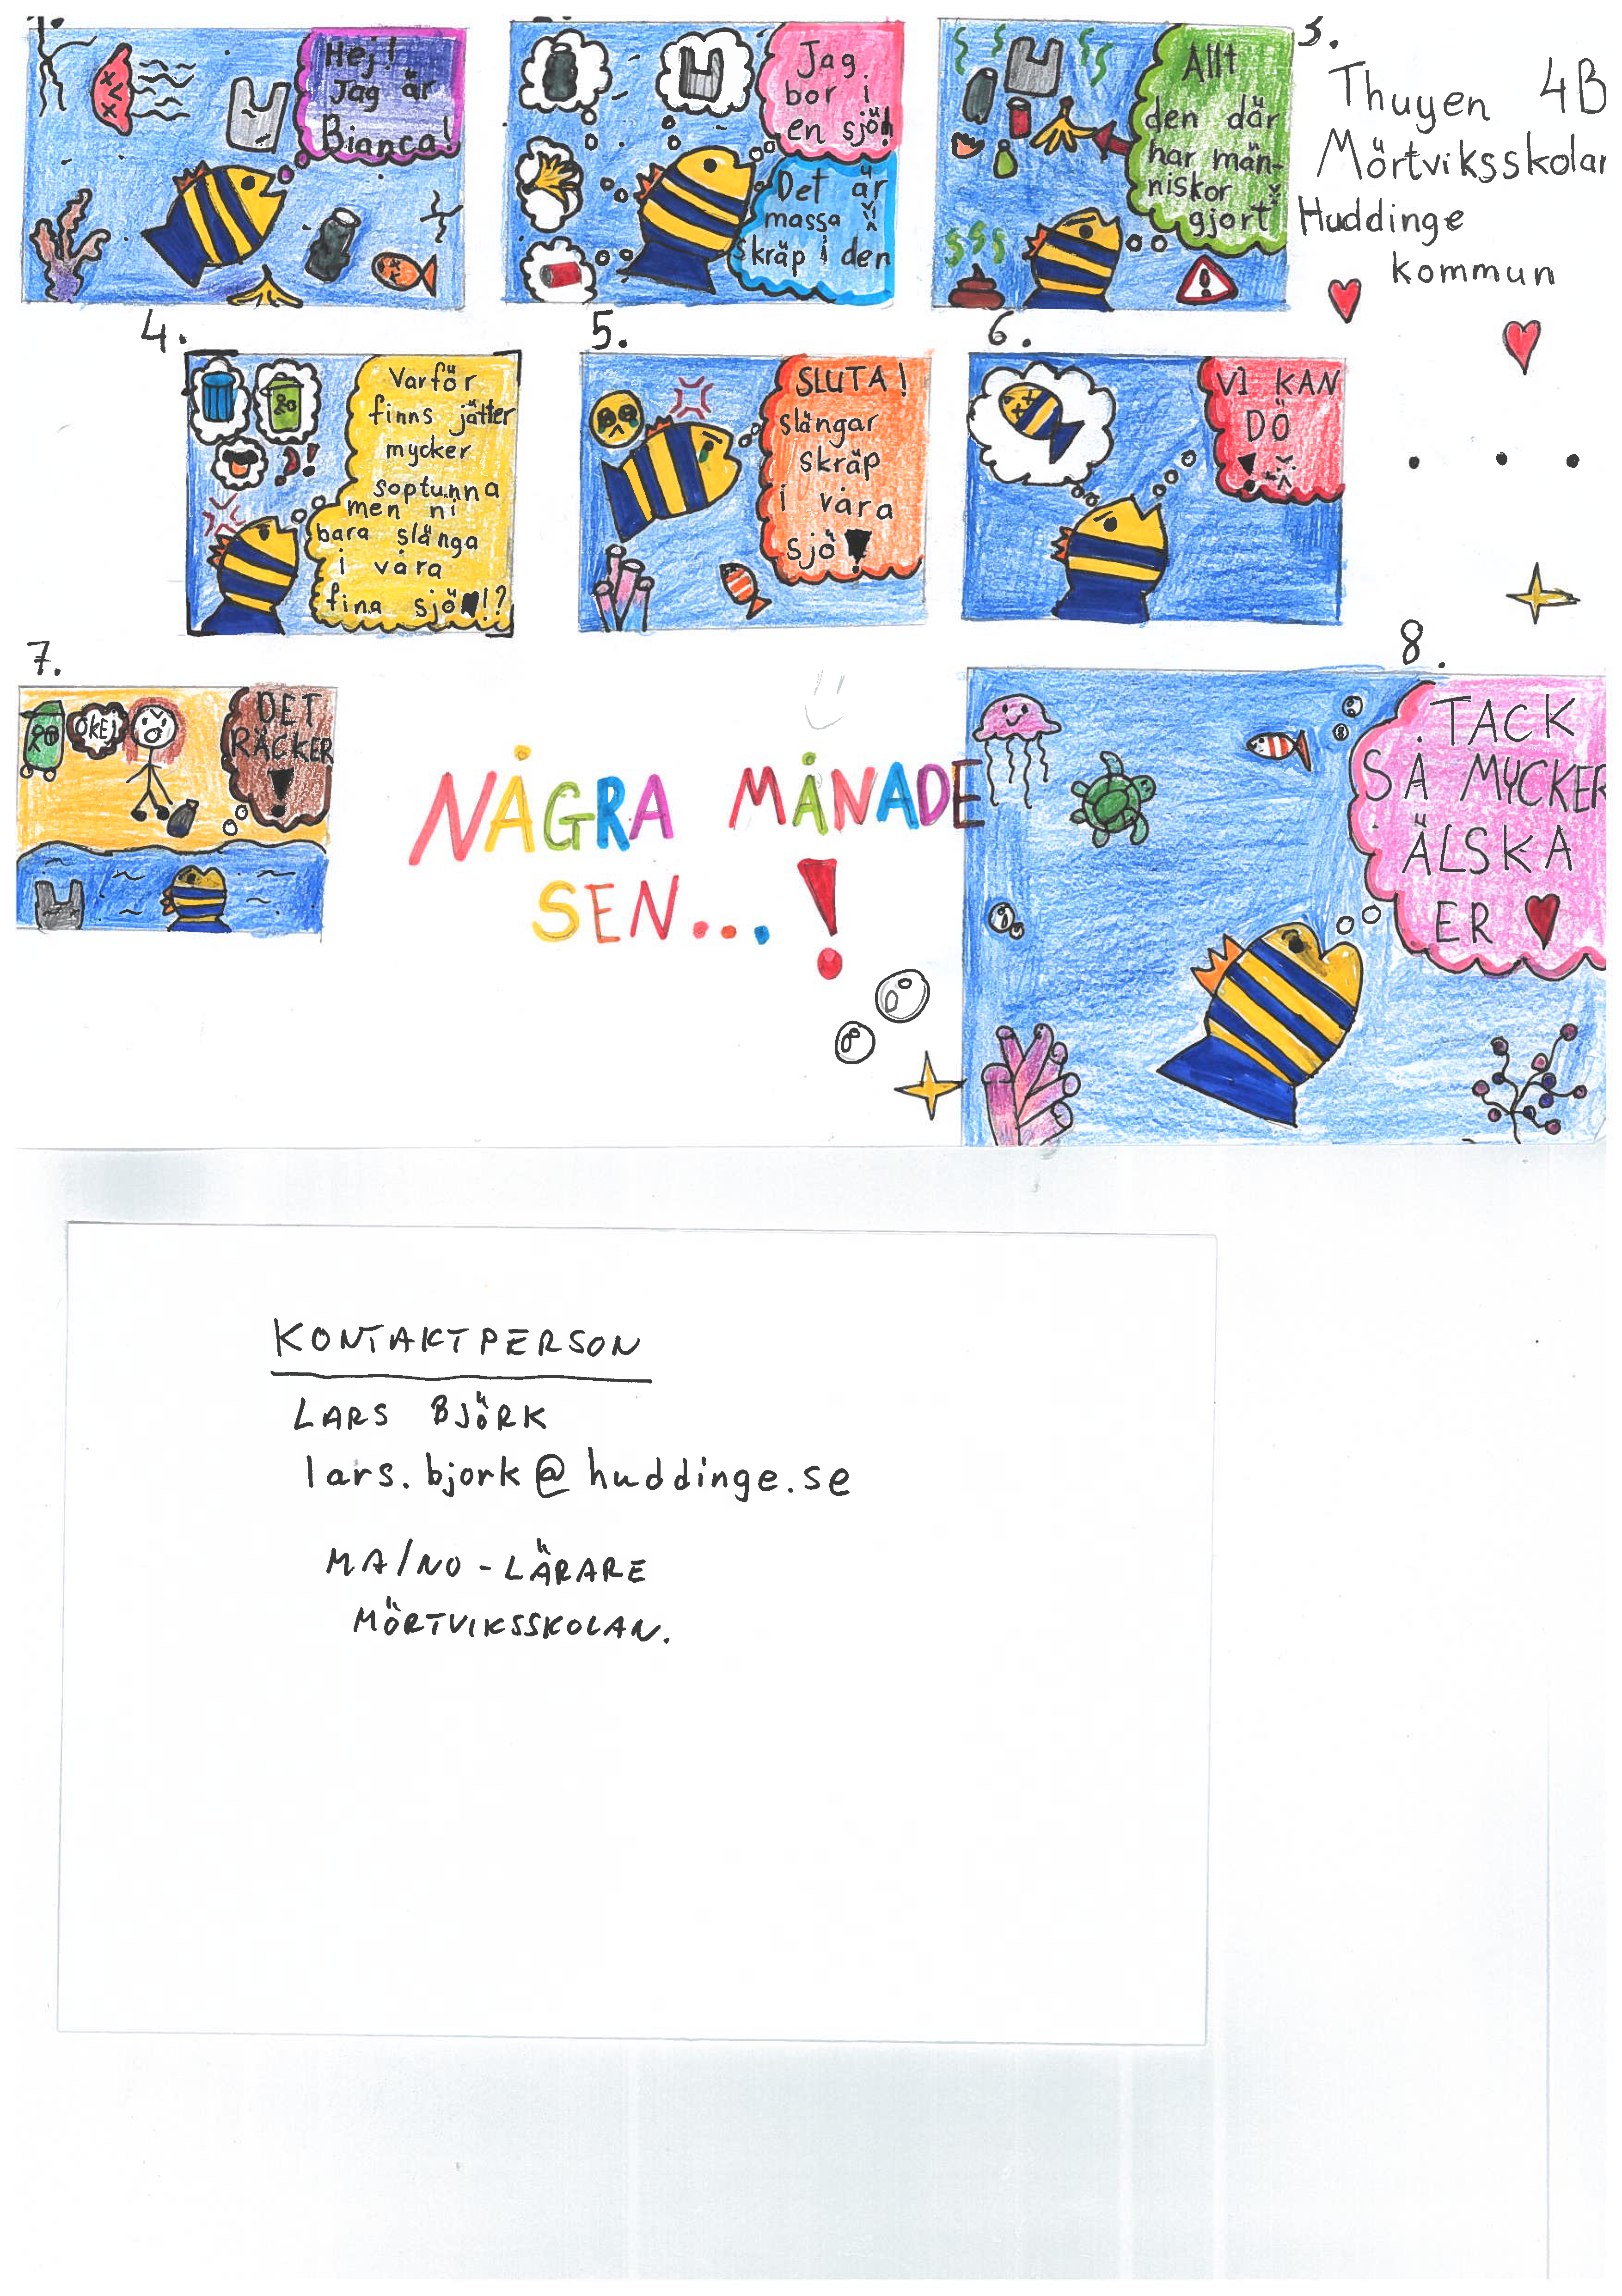 1.
Hej!
Jag är
Bianca!
Jag
bor i
en sjö!
Det är
massa
skräp i den
3.
Allt
den där
har män-
niskor
gjort
Thuyen 4B
Mörtviksskolan
Huddinge
kommun
4.
Varför
finns jätter
mycker
soptunna
men ni
bara slänga
i våra
fina sjö!?
5.
SLUTA!
slängar
skräp
i våra
sjö!
6.
VI KAN
DÖ
!
...
7.
OKEJ
DET
RÄCKER
!
NÅGRA MÅNADE
SEN...!
8.
TACK
SÅ MYCKER
ÄLSKA
ER
KONTAKTPERSON
LARS BJÖRK
lars.bjork@huddinge.se
MA/NO-LÄRARE
MÖRTVIKSSKOLAN.